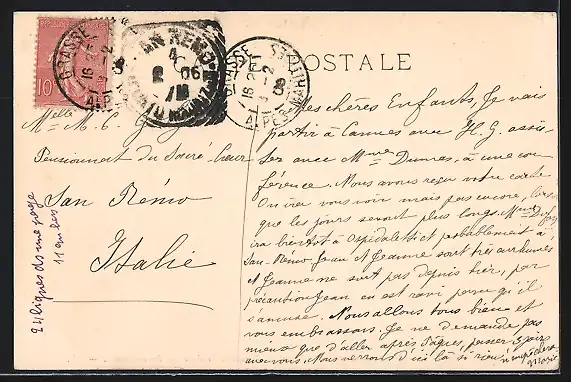 POSTALE
GRASSE
16 25
3 -2
ALPES
SAN REMO
4
2 06
GRASSE
16 25
3 -2
ALPES-MARIT
10
Mes chères Enfants, Je vais
partir à Cannes avec H. G. assis-
ter avec Mme Dumas, à une con
férence. Nous avons reçu votre carte
On ira vous voir mais pas encore, lors
que les jours seront plus longs. Mme
ira bientôt à Ospidaletti et probablement à
San-Remo Jean et Jeanne sont très enrhumés
et Jeanne ne sort pas depuis hier, par
précaution Jean en est ravi parce qu'il
s'amuse. Nous allons tous bien et
vous embrassons. Je ne demande pas
mieux que d'aller après Pâques, passer 8 jours
avec vous. Nous verrons d'ici là si rien
n'empêchera
Marie
Melle M. L.
Pensionnat du Sacré Cœur
San Rémo
Italie
24 lignes ds une page
11 en les